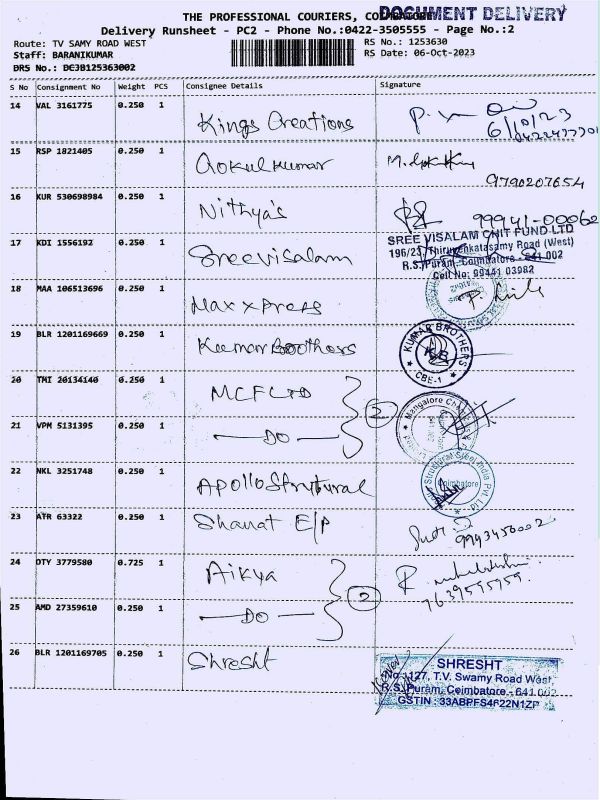 THE PROFESSIONAL COURIERS,
DOCUMENT DELIVERY
Delivery Runsheet - PC2 - Phone No.:0422-3505555 - Page No.:2
Route: TV SAMY ROAD WEST
RS No.: 1253630
Staff: BARANIKUMAR
RS Date: 06-Oct-2023
DRS No.: DCJB125363002
S No Consignment No Weight PCS Consignee Details Signature
14 VAL 3161775 0.250 1 Kings Creations
6/10/23
15 RSP 1821405 0.250 1 Gokulkumar
9790207654
16 KUR 530698984 0.250 1 Nithya's
99941-00062
17 KDI 1556192 0.250 1 Sreevisalam
SREE VISALAM CHIT FUND LTD
196/23, Thiruvenkatasamy Road (West)
R.S. Puram, Coimbatore - 641 002
Cell No: 99451 03982
18 MAA 106513696 0.250 1 Max x Press
19 BLR 1201169669 0.250 1 Kumar Brothers
KUMAR BROTHERS
KB
CBE-1
20 TMI 20134140 0.250 1 MCF LTD
2
21 VPM 5131395 0.250 1 DO
Mangalore
22 NKL 3251748 0.250 1 Apollo Strutural
Structural Steel India Pvt. Ltd
Coimbatore
23 ATR 63322 0.250 1 Sharat E/P
9943456002
24 OTY 3779580 0.725 1 Aikya
2
7639595959
25 AMD 27359610 0.250 1 DO
26 BLR 1201169705 0.250 1 Shresht
SHRESHT
No.:127, T.V. Swamy Road West,
R.S. Puram, Coimbatore - 641 002
GSTIN : 33ABPFS4622N1ZP